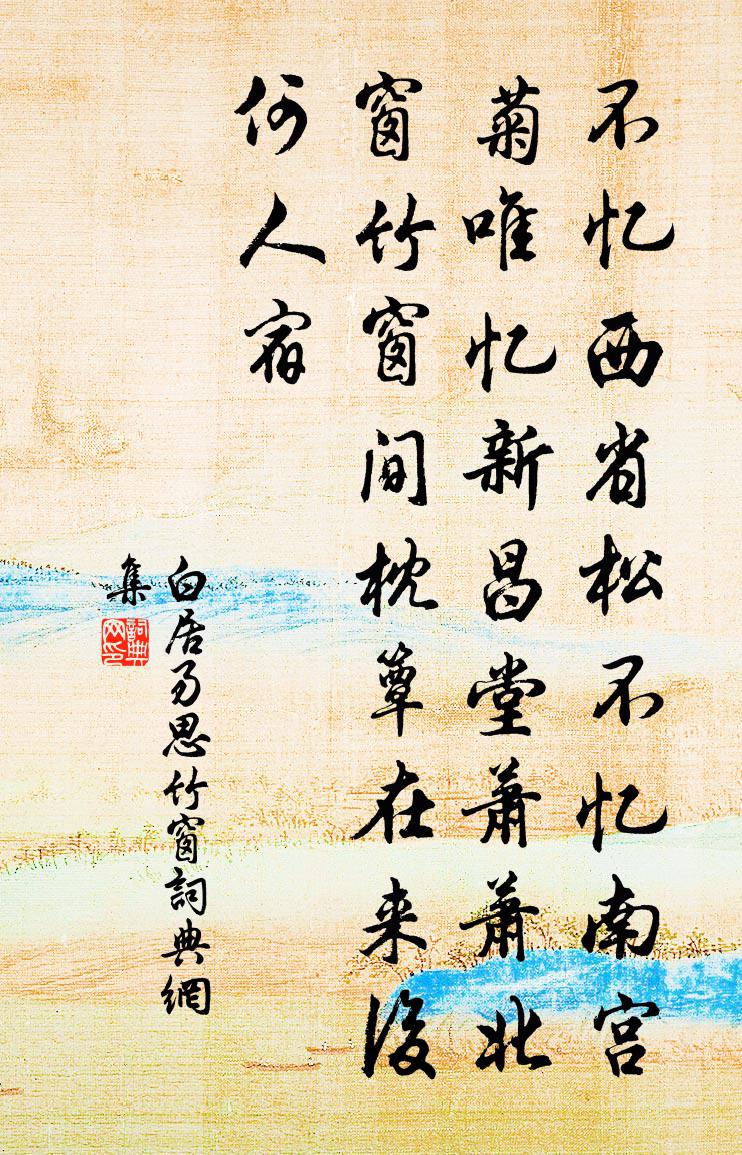 不忆西省松不忆南宫
菊唯忆新昌堂萧萧北
窗竹窗间枕簟在来後
何人宿
白居易思竹窗詞典網
集
詞典
网印